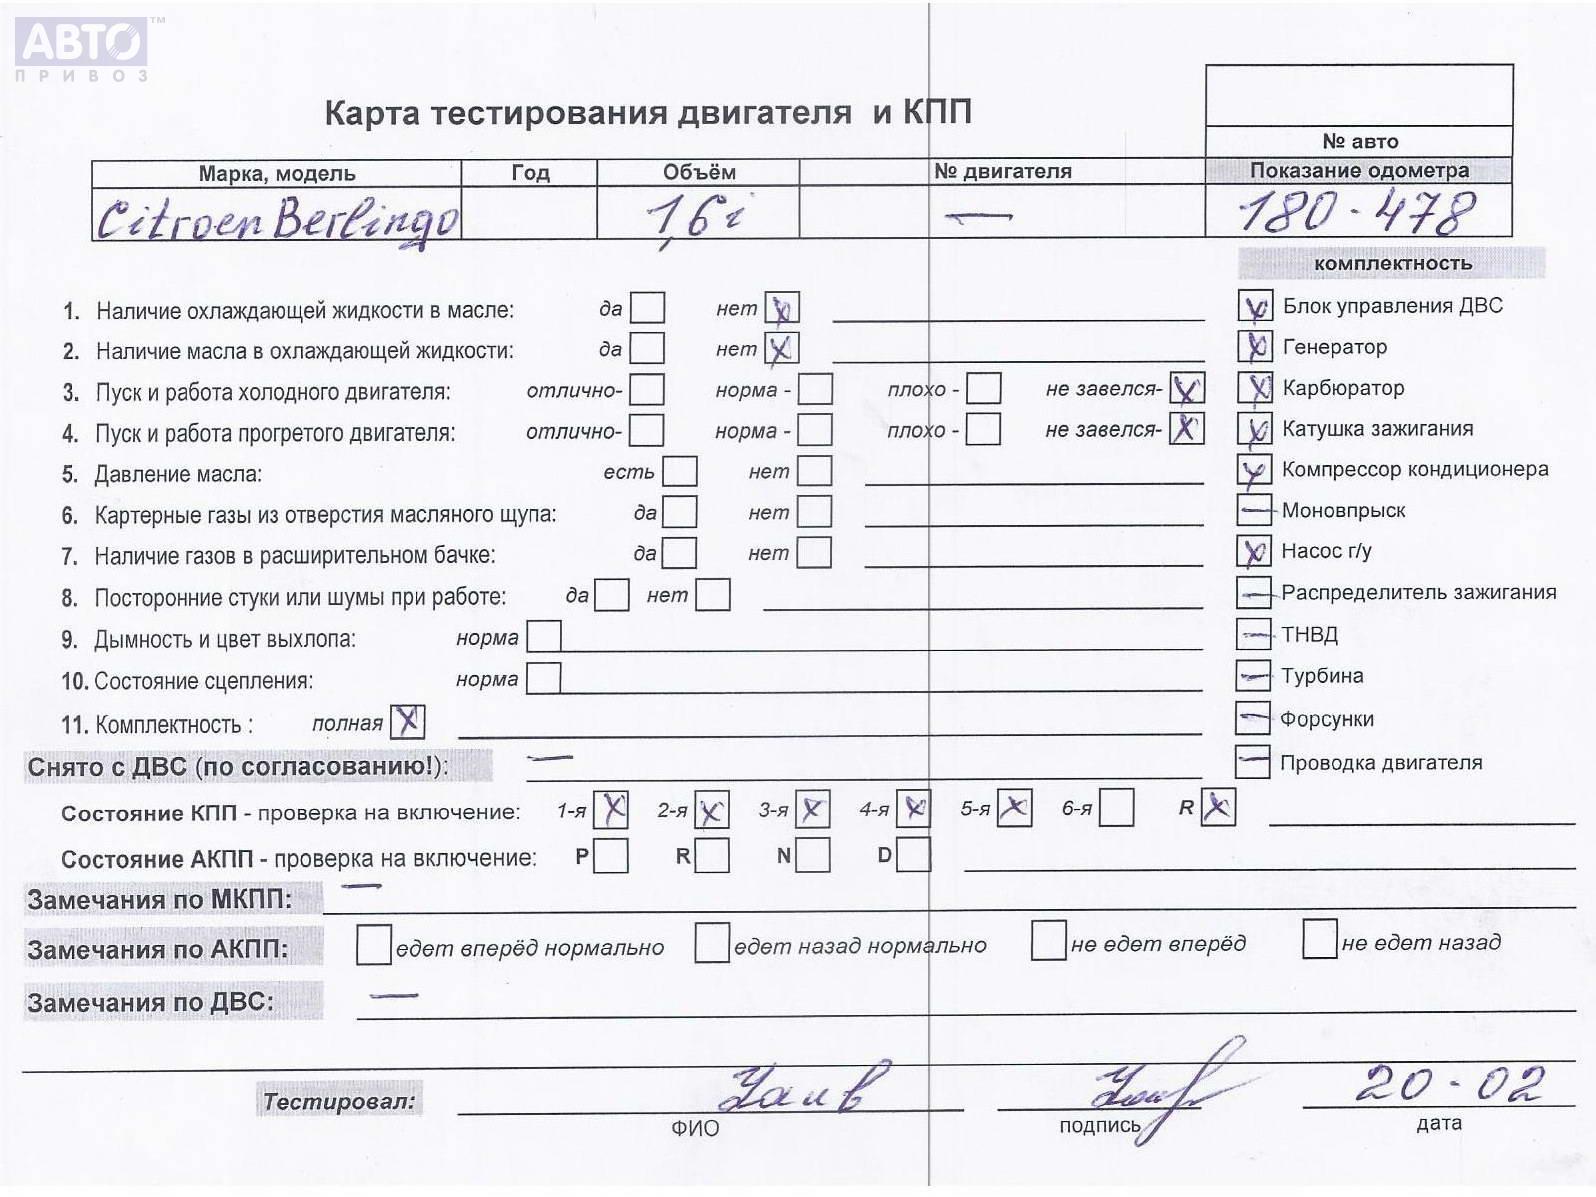 АВТО™
ПРИВОЗ
Карта тестирования двигателя и КПП
№ авто
Марка, модель Год Объём № двигателя Показание одометра
Citroen Berlingo 1,6i — 180-478
комплектность
1. Наличие охлаждающей жидкости в масле: да нет X Блок управления ДВС
2. Наличие масла в охлаждающей жидкости: да нет X Генератор
3. Пуск и работа холодного двигателя: отлично- норма - плохо - не завелся- X Карбюратор
4. Пуск и работа прогретого двигателя: отлично- норма - плохо - не завелся- X Катушка зажигания
5. Давление масла: есть нет Компрессор кондиционера
6. Картерные газы из отверстия масляного щупа: да нет Моновпрыск
7. Наличие газов в расширительном бачке: да нет Насос г/у
8. Посторонние стуки или шумы при работе: да нет Распределитель зажигания
9. Дымность и цвет выхлопа: норма ТНВД
10. Состояние сцепления: норма Турбина
11. Комплектность : полная X Форсунки
Снято с ДВС (по согласованию!): — Проводка двигателя
Состояние КПП - проверка на включение: 1-я X 2-я X 3-я X 4-я X 5-я X 6-я R X
Состояние АКПП - проверка на включение: P R N D
Замечания по МКПП: —
Замечания по АКПП: едет вперёд нормально едет назад нормально не едет вперёд не едет назад
Замечания по ДВС: —
Тестировал: 20-02
ФИО подпись дата